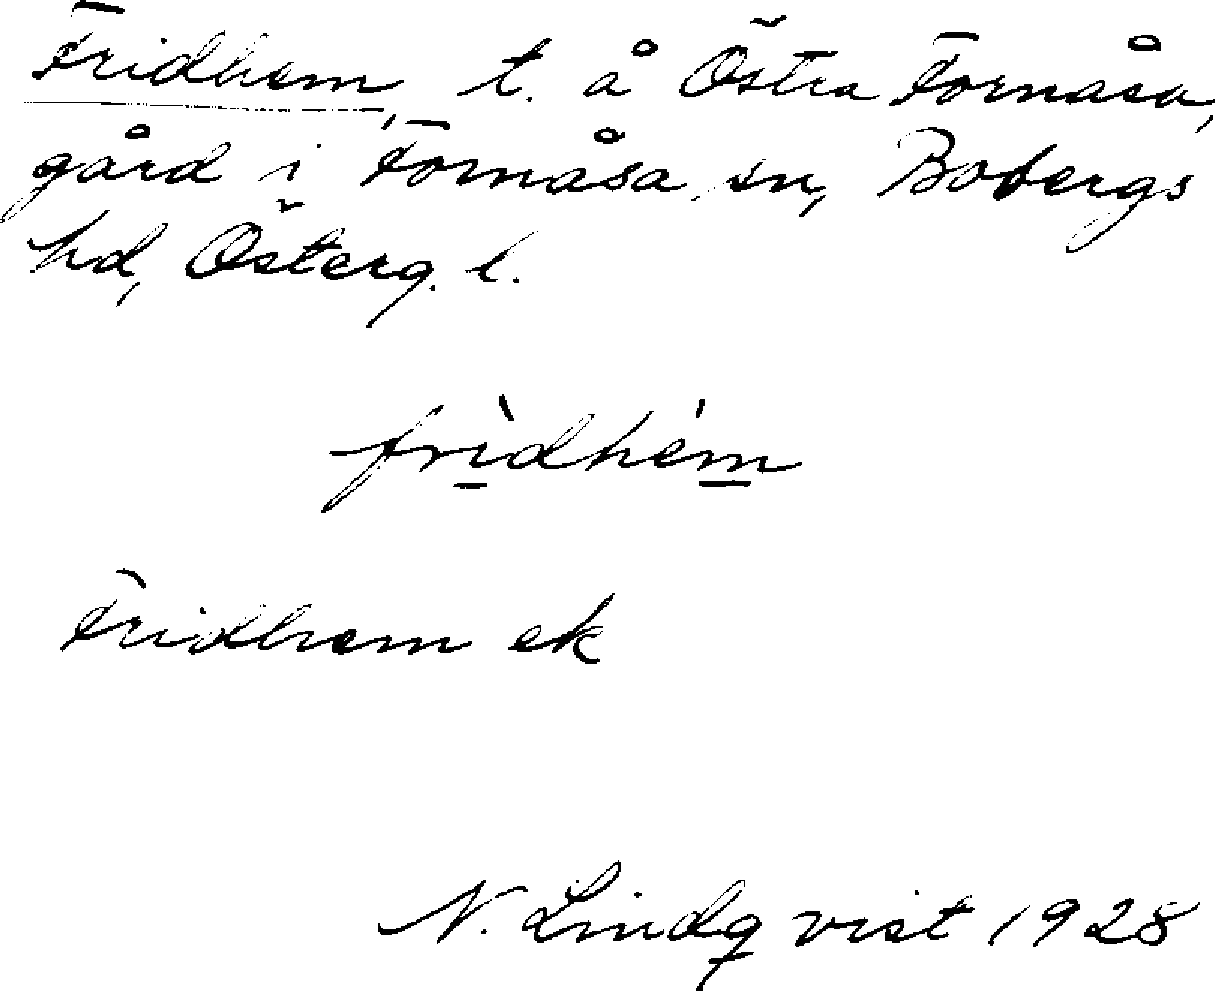 Fridhem, t. å Östra Fornåsa,
gård i Fornåsa sn, Bobergs
hd, Österg. l.
frìdhém
Fridhem ek
N. Lindqvist 1928